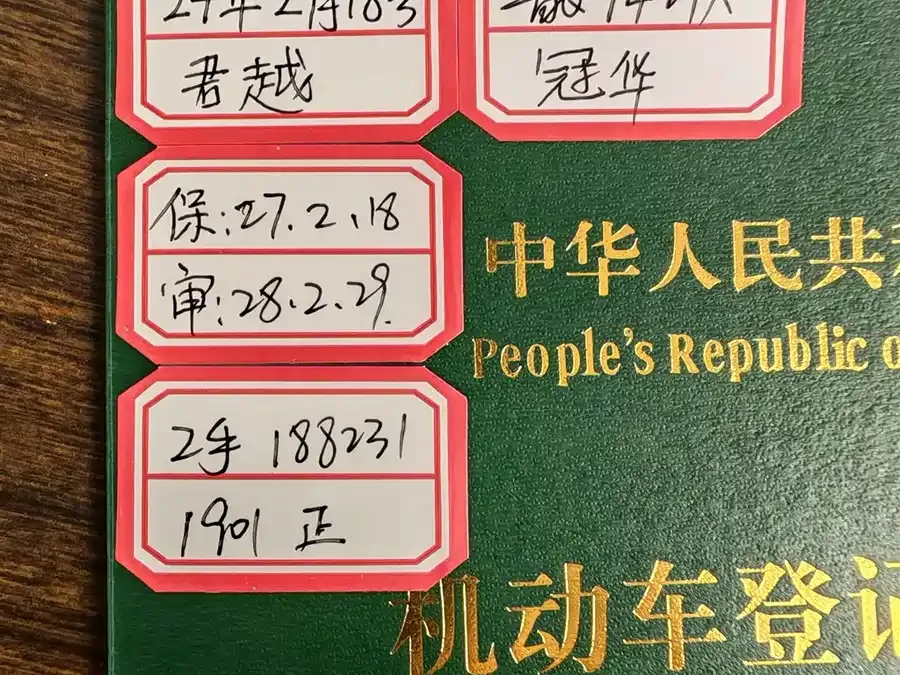 24年2月18号
君越
冠华
保:27.2.18
审:28.2.29.
2手 188231
1901 正
中华人民共
People's Republic o
机动车登记